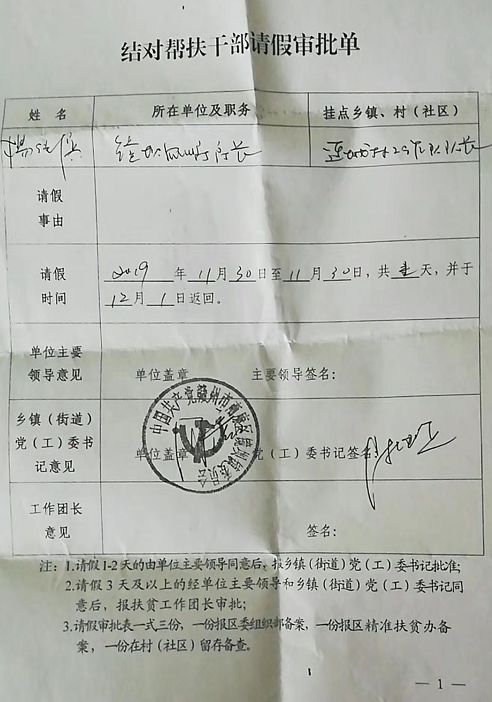 结对帮扶干部请假审批单
姓 名 所在单位及职务 挂点乡镇、村（社区）
请假
事由
请假 2019 年 11 月 30 日至 11 月 30 日，共 天，并于
时间 12 月 1 日返回。
单位主要
领导意见 单位盖章 主要领导签名：
乡镇（街道）
党（工）委书 单位盖章 党（工）委书记签名：
记意见
中国共产党赣州市
委员会
工作团长
意见 签名：
注：1.请假1-2天的由单位主要领导同意后，报乡镇（街道）党（工）委书记批准；
2.请假3天及以上的经单位主要领导和乡镇（街道）党（工）委书记同
意后，报扶贫工作团长审批；
3.请假审批表一式三份，一份报区委组织部备案，一份报区精准扶贫办备
案，一份在村（社区）留存备查。
— 1 —